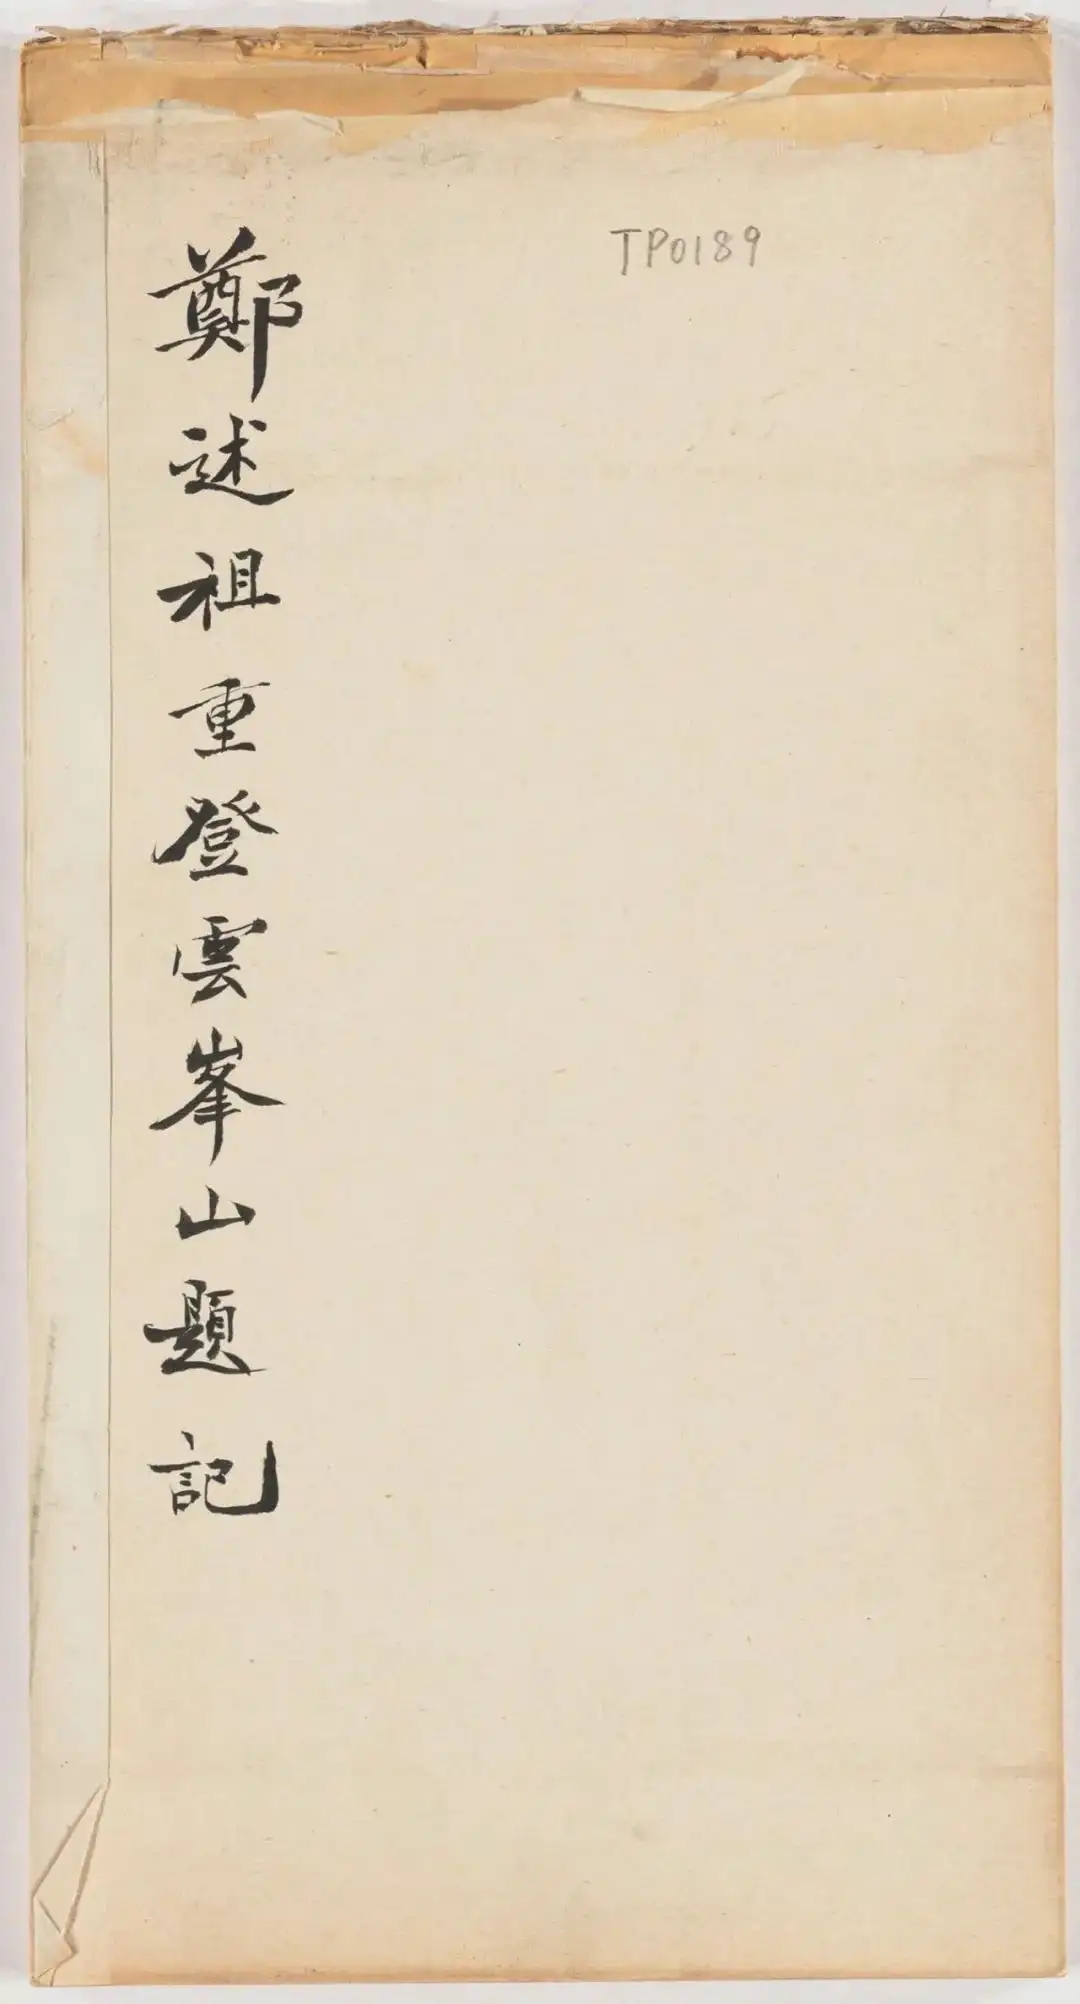 鄭述祖重登雲峯山題記
TP0189